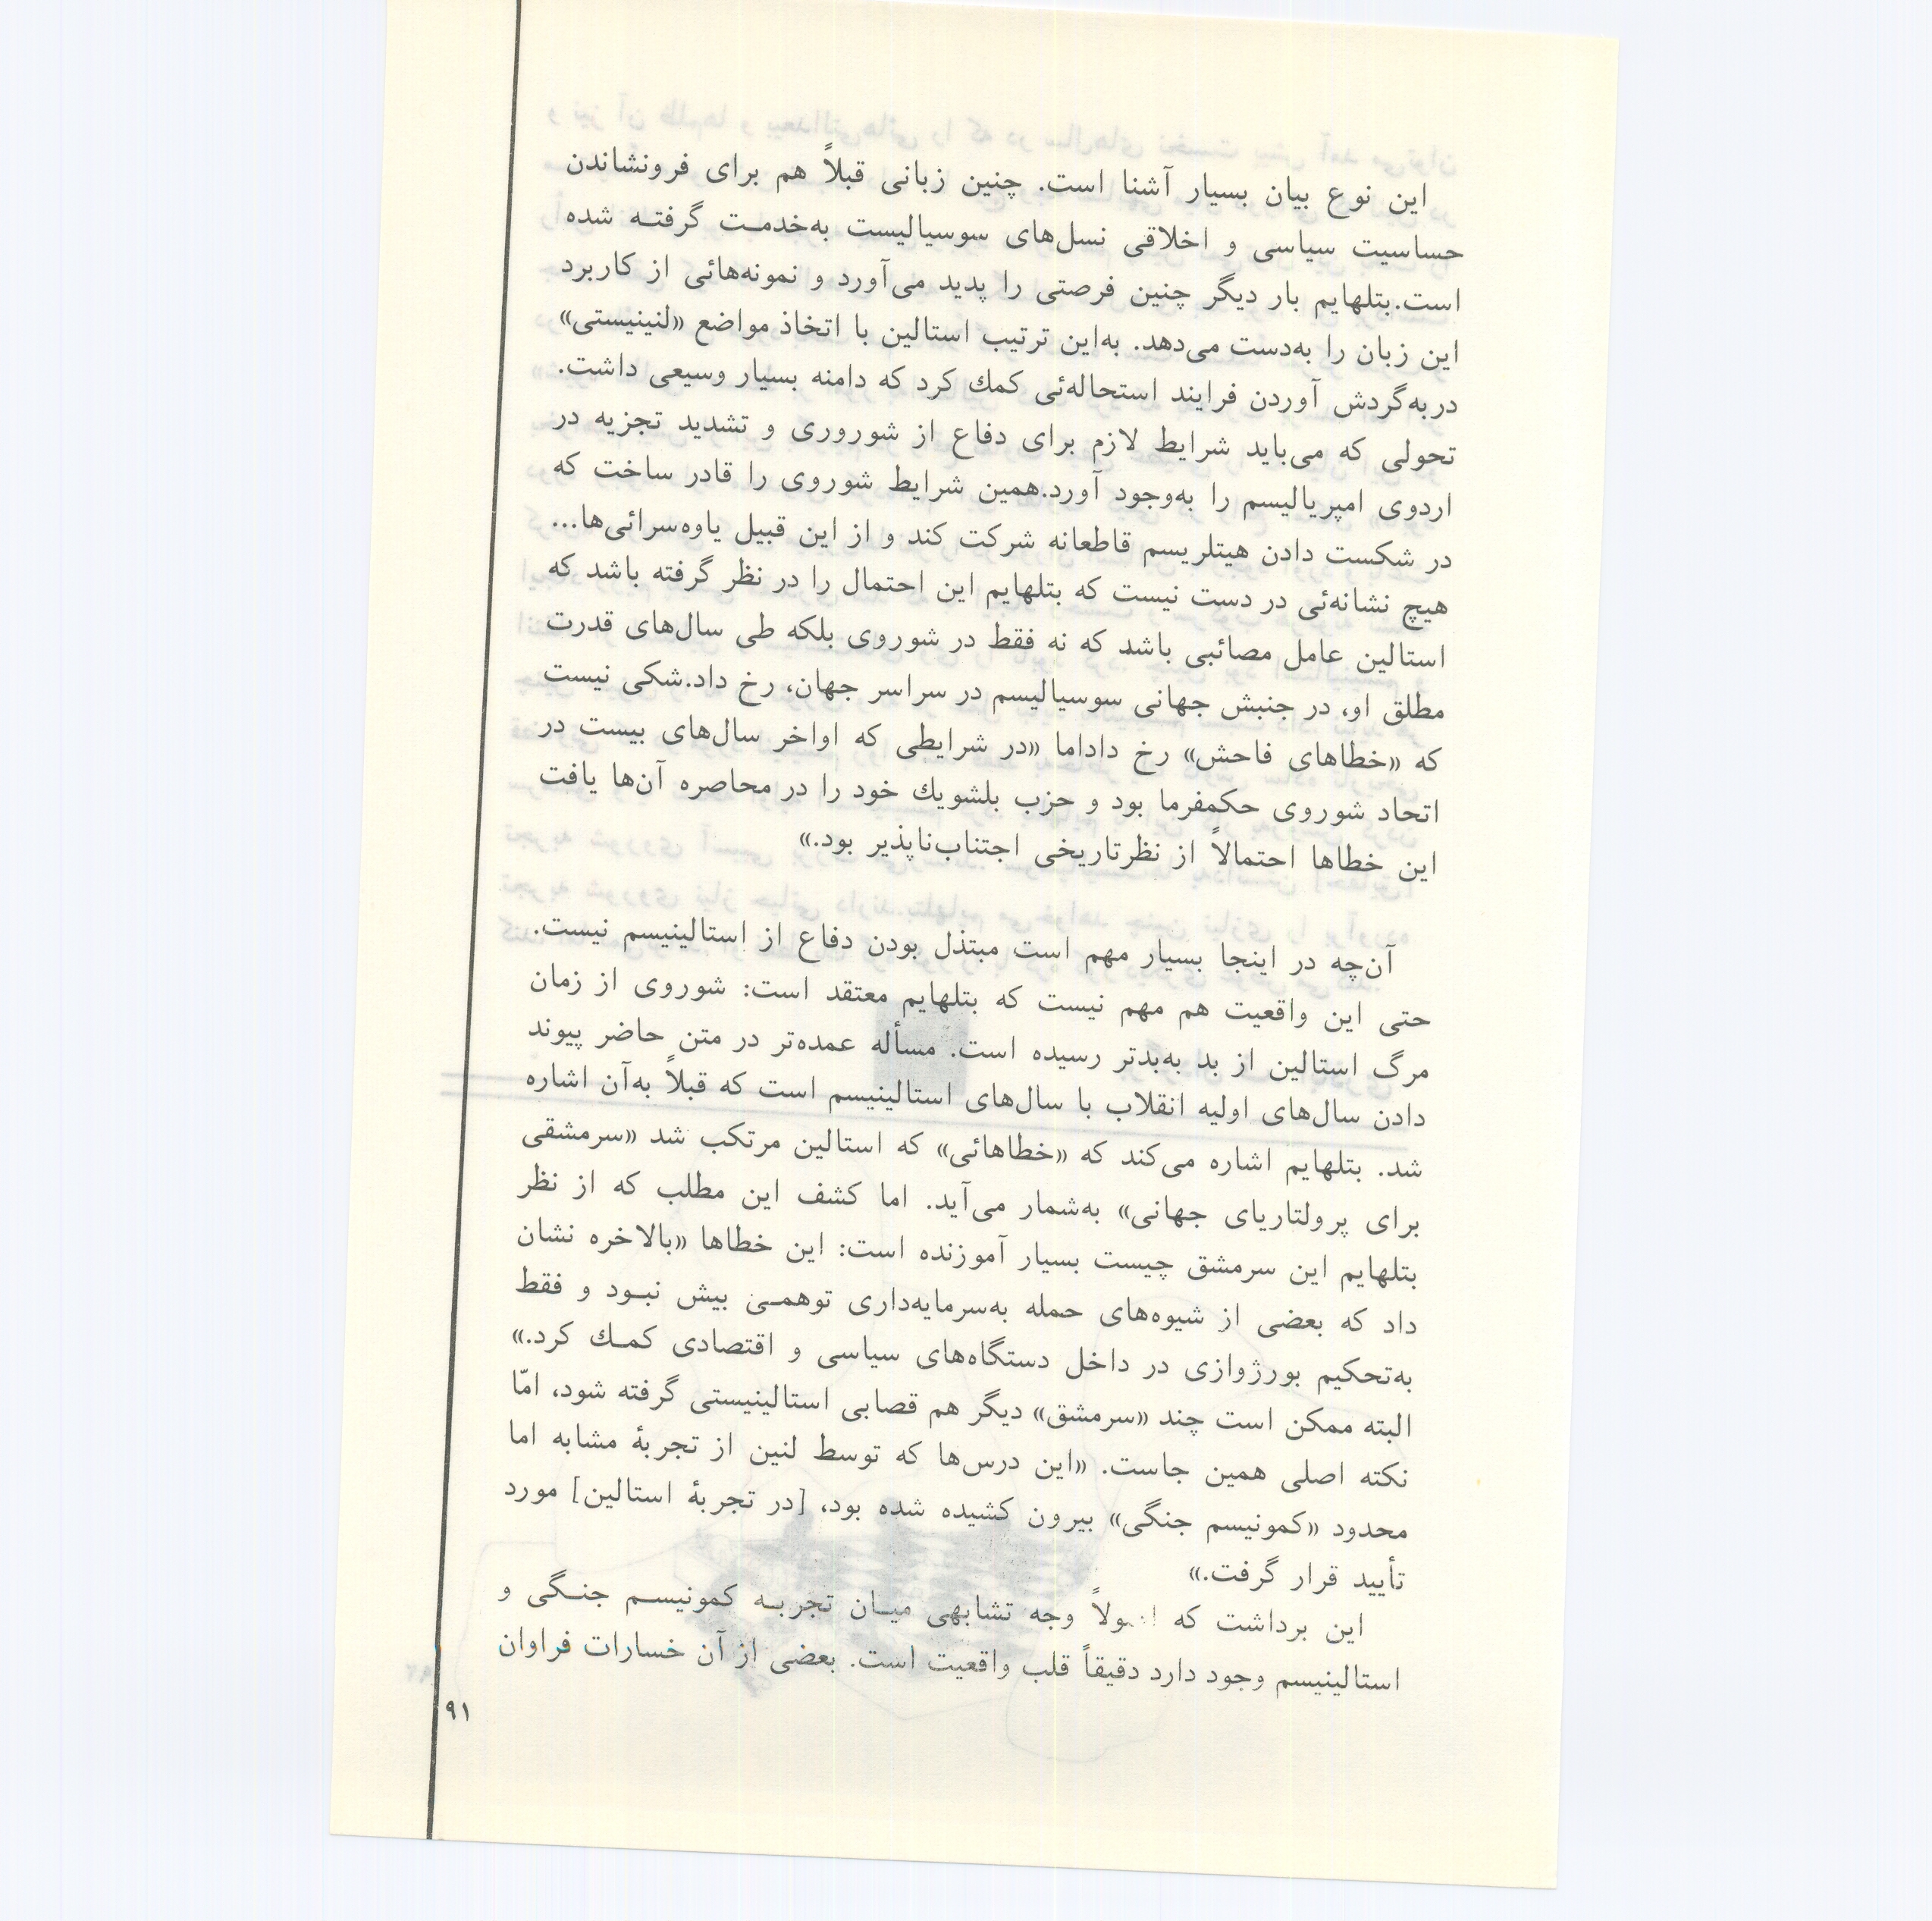 این نوع بیان بسیار آشنا است. چنین زبانی قبلاً هم برای فرونشاندن
حساسیت سیاسی و اخلاقی نسل‌های سوسیالیست به‌خدمت گرفته شده
است.بتلهایم بار دیگر چنین فرصتی را پدید می‌آورد و نمونه‌هائی از کاربرد
این زبان را به‌دست می‌دهد. به‌این ترتیب استالین با اتخاذ مواضع «لنینیستی»
دربه‌گردش آوردن فرایند استحاله‌ئی کمك کرد که دامنه بسیار وسیعی داشت.
تحولی که می‌باید شرایط لازم برای دفاع از شوروری و تشدید تجزیه در
اردوی امپریالیسم را به‌وجود آورد.همین شرایط شوروی را قادر ساخت که
در شکست دادن هیتلریسم قاطعانه شرکت کند و از این قبیل یاوه‌سرائی‌ها...
هیچ نشانه‌ئی در دست نیست که بتلهایم این احتمال را در نظر گرفته باشد که
استالین عامل مصائبی باشد که نه فقط در شوروی بلکه طی سال‌های قدرت
مطلق او، در جنبش جهانی سوسیالیسم در سراسر جهان، رخ داد.شکی نیست
که «خطاهای فاحش» رخ داداما «در شرایطی که اواخر سال‌های بیست در
اتحاد شوروی حکمفرما بود و حزب بلشویك خود را در محاصره آن‌ها یافت
این خطاها احتمالاً از نظرتاریخی اجتناب‌ناپذیر بود.»
آن‌چه در اینجا بسیار مهم است مبتذل بودن دفاع از استالینیسم نیست.
حتی این واقعیت هم مهم نیست که بتلهایم معتقد است: شوروی از زمان
مرگ استالین از بد به‌بدتر رسیده است. مسأله عمده‌تر در متن حاضر پیوند
دادن سال‌های اولیه انقلاب با سال‌های استالینیسم است که قبلاً به‌آن اشاره
شد. بتلهایم اشاره می‌کند که «خطاهائی» که استالین مرتکب شد «سرمشقی
برای پرولتاریای جهانی» به‌شمار می‌آید. اما کشف این مطلب که از نظر
بتلهایم این سرمشق چیست بسیار آموزنده است: این خطاها «بالاخره نشان
داد که بعضی از شیوه‌های حمله به‌سرمایه‌داری توهمی بیش نبود و فقط
به‌تحکیم بورژوازی در داخل دستگاه‌های سیاسی و اقتصادی کمك کرد.»
البته ممکن است چند «سرمشق» دیگر هم قصابی استالینیستی گرفته شود، امّا
نکته اصلی همین جاست. «این درس‌ها که توسط لنین از تجربهٔ مشابه اما
محدود «کمونیسم جنگی» بیرون کشیده شده بود، [در تجربهٔ استالین] مورد
تأیید قرار گرفت.»
این برداشت که وجه تشابهی میان تجربه کمونیسم جنگی و
استالینیسم وجود دارد دقیقاً قلب واقعیت است. بعضی از آن خسارات فراوان
۹۱